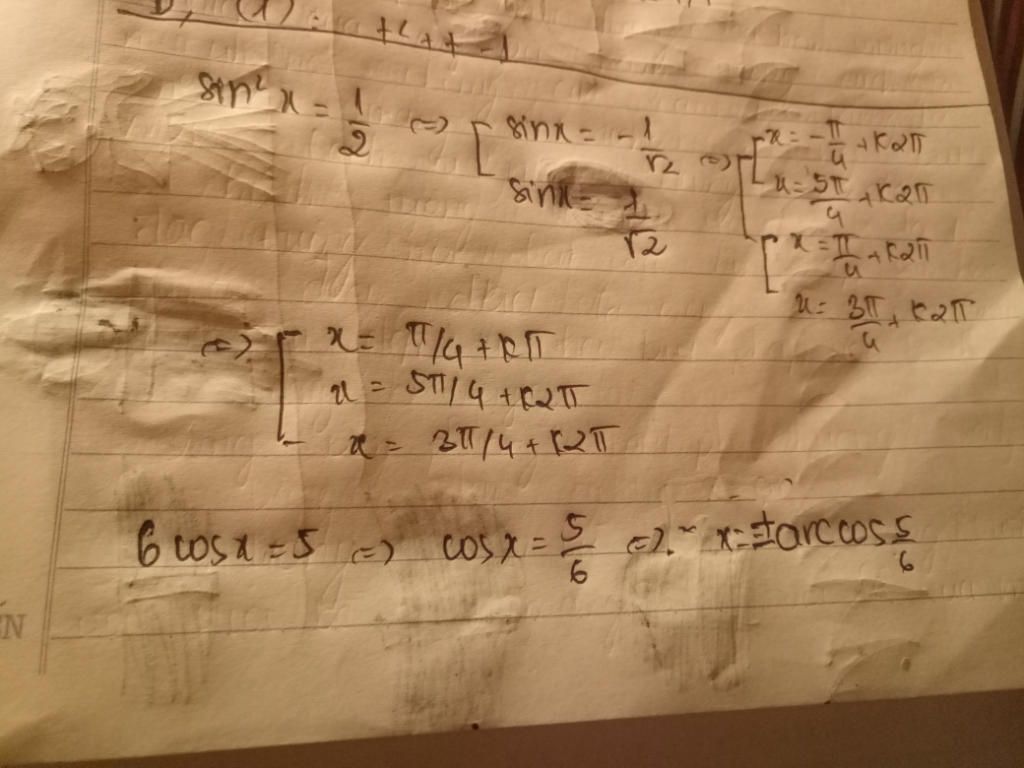 + 2 + + - 1
sin² x = 1/2 <=> [ sinx = - 1/√2 <=> [ x = - π/4 + K2π
x = 5π/4 + K2π
sinx = 1/√2 [ x = π/4 + K2π
x = 3π/4 + K2π
<=> [ x = π/4 + Kπ
x = 5π/4 + K2π
x = 3π/4 + K2π
6 cosx = 5 <=> cosx = 5/6 <=> x = ± arccos 5/6